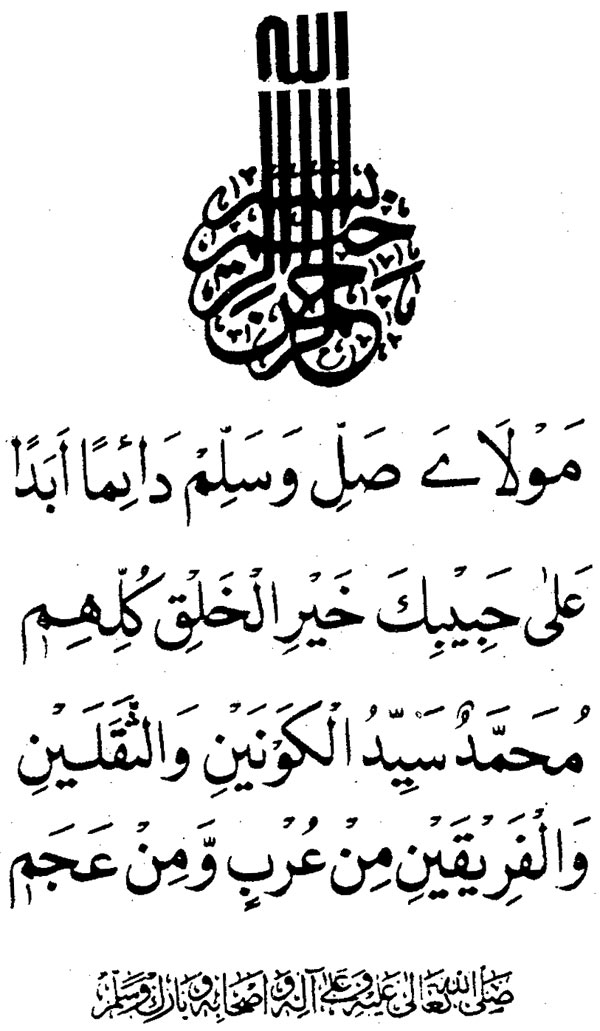 بسم الله الرحمن الرحيم
مَوْلَاےَ صَلِّ وَسَلِّمْ دَائِمًا اَبَدًا
عَلٰى حَبِيْبِكَ خَيْرِ الْخَلْقِ كُلِّهِمِ
مُحَمَّدٌ سَيِّدُ الْكَوْنَيْنِ وَالثَّقَلَيْنِ
وَالْفَرِيْقَيْنِ مِنْ عُرْبٍ وَّمِنْ عَجَمِ
صَلَّى اللهُ تَعَالٰى عَلَيْهِ وَعَلٰى آلِهٖ وَاَصْحَابِهٖ وَبَارَكَ وَسَلَّمَ